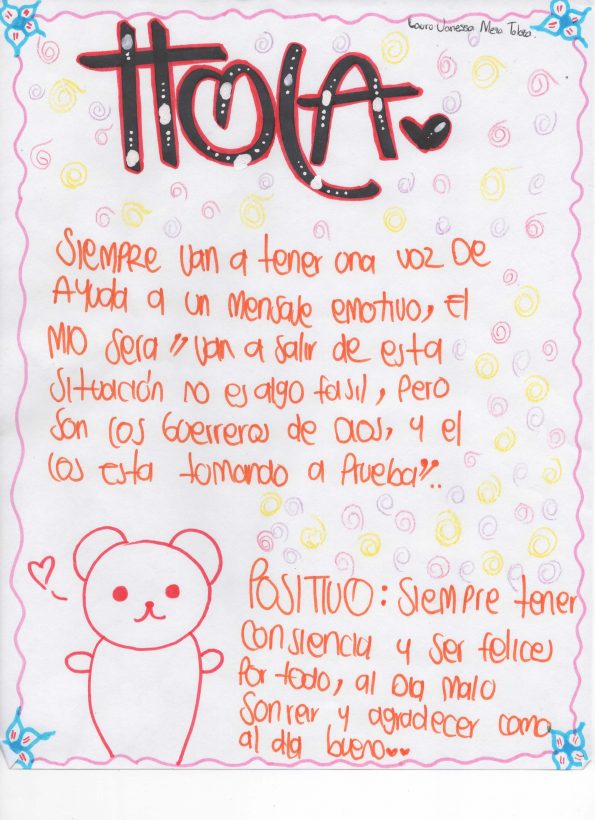 Laura Vanessa Mera Tobar.
HOLA
SIEMPRE van a tener una voz DE
Ayuda a un mensaje emotivo, El
MIO Sera "van a salir de esta
Situación no es algo fasil, pero
Son los Guerreros de Dios, y el
los esta tomando a Prueba"..
POSITIVO: Siempre tener
Consiencia y ser felices
Por todo, al Dia malo
Sonreir y agradecer como
al dia bueno